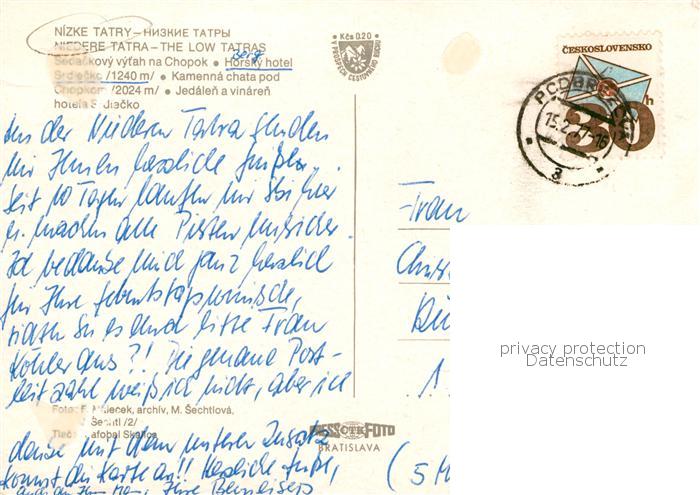 NÍZKE TATRY — НИЗКИЕ ТАТРЫ
NIEDERE TATRA — THE LOW TATRAS
Sedačkový výťah na Chopok • Horský hotel
Berg
Srdiečko /1240 m/ • Kamenná chata pod
Chopkom /2024 m/ • Jedáleň a vináreň
hotela Srdiečko
Kčs 0.20
ČESKOSLOVENSKO
30 h
15.2.77-16
a
Aus der Niederen Tatra senden
wir Ihnen herzliche Grüße.
Seit 10 Tagen laufen wir Ski hier
u. machen alle Pisten unsicher.
Ich bedanke mich ganz herzlich
für Ihre Geburtstagswünsche,
richten Sie es auch bitte Frau
Köhler aus?! Die genaue Post-
leitzahl weiß ich nicht, aber ich
denke mit dem unteren Zusatz
kommt die Karte an!! Herzliche Grüße,
auch an Ihren Mann, Ihre
Frau
1.
(5
Foto: archív, M. Šechtlová,
/2/
PRESSFOTO
BRATISLAVA
privacy protection
Datenschutz